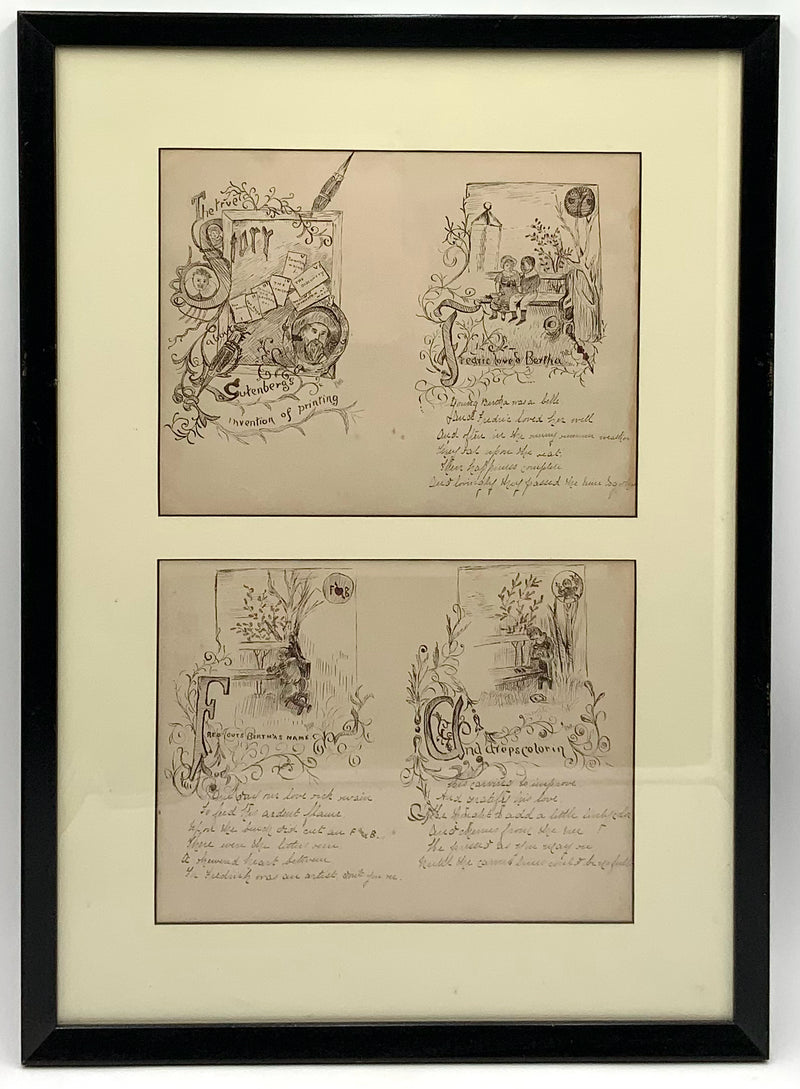 The true
Story
about
Gutenberg's
invention of printing
Fredric loved Bertha
Young Bertha was a belle
And Fredric loved her well
And often in the sunny summer weather
They sat upon the seat,
Their happiness complete
And lovingly they passed the time
F B
Fred cuts Bertha's name
One day our love sick swain
To feed his ardent flame
Upon the bench did cut an F & B.
There were the letters seen
A skewered heart between
For Fredrick was an artist don't you see.
And drops color in
His carving to improve
And gratify his love
He thought to add a little tint
And from the tree
He pressed as you may see
Until the carved lines could be